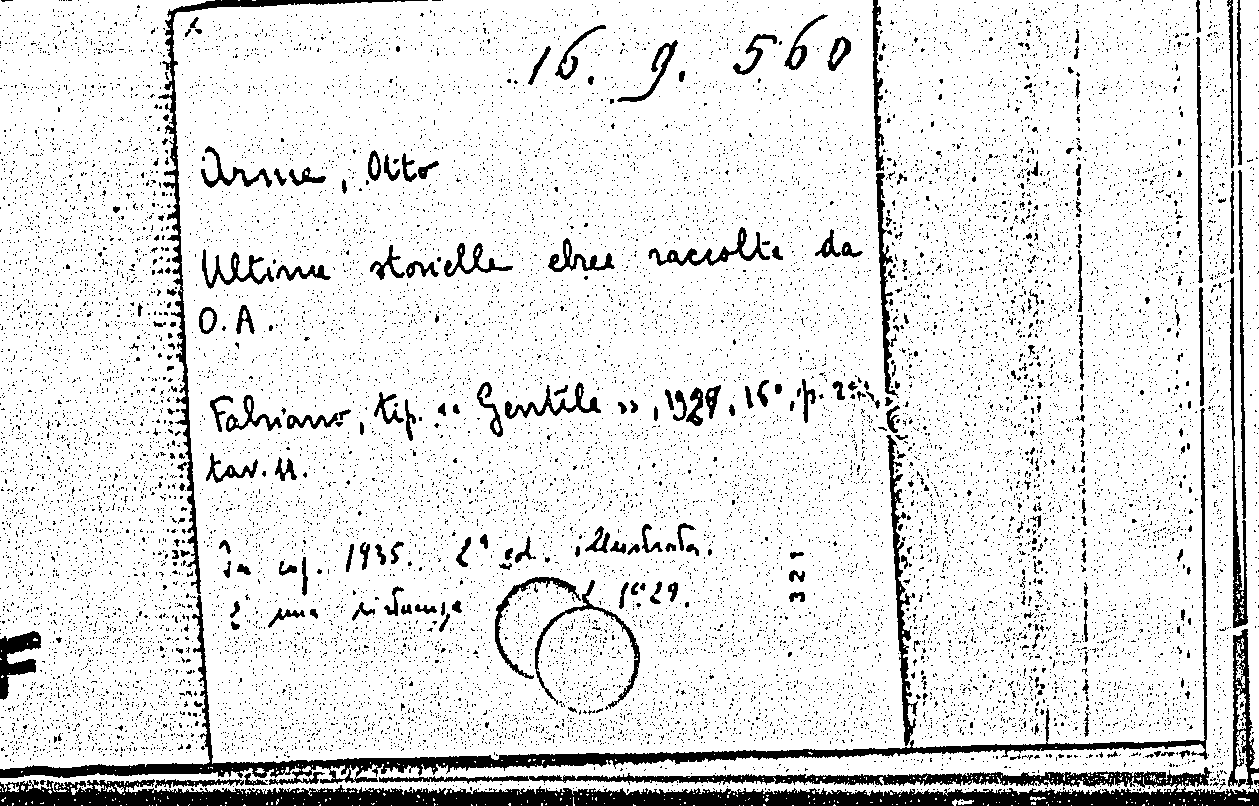 16. 9. 560
Arme, Otto
Ultime storielle ebree raccolte da
O.A.
Fabriano, tip. «Gentile», 1929, 16°, p.
tav. 11.
In cop. 1935. 2ª ed. illustrata.
È una ristampa
321